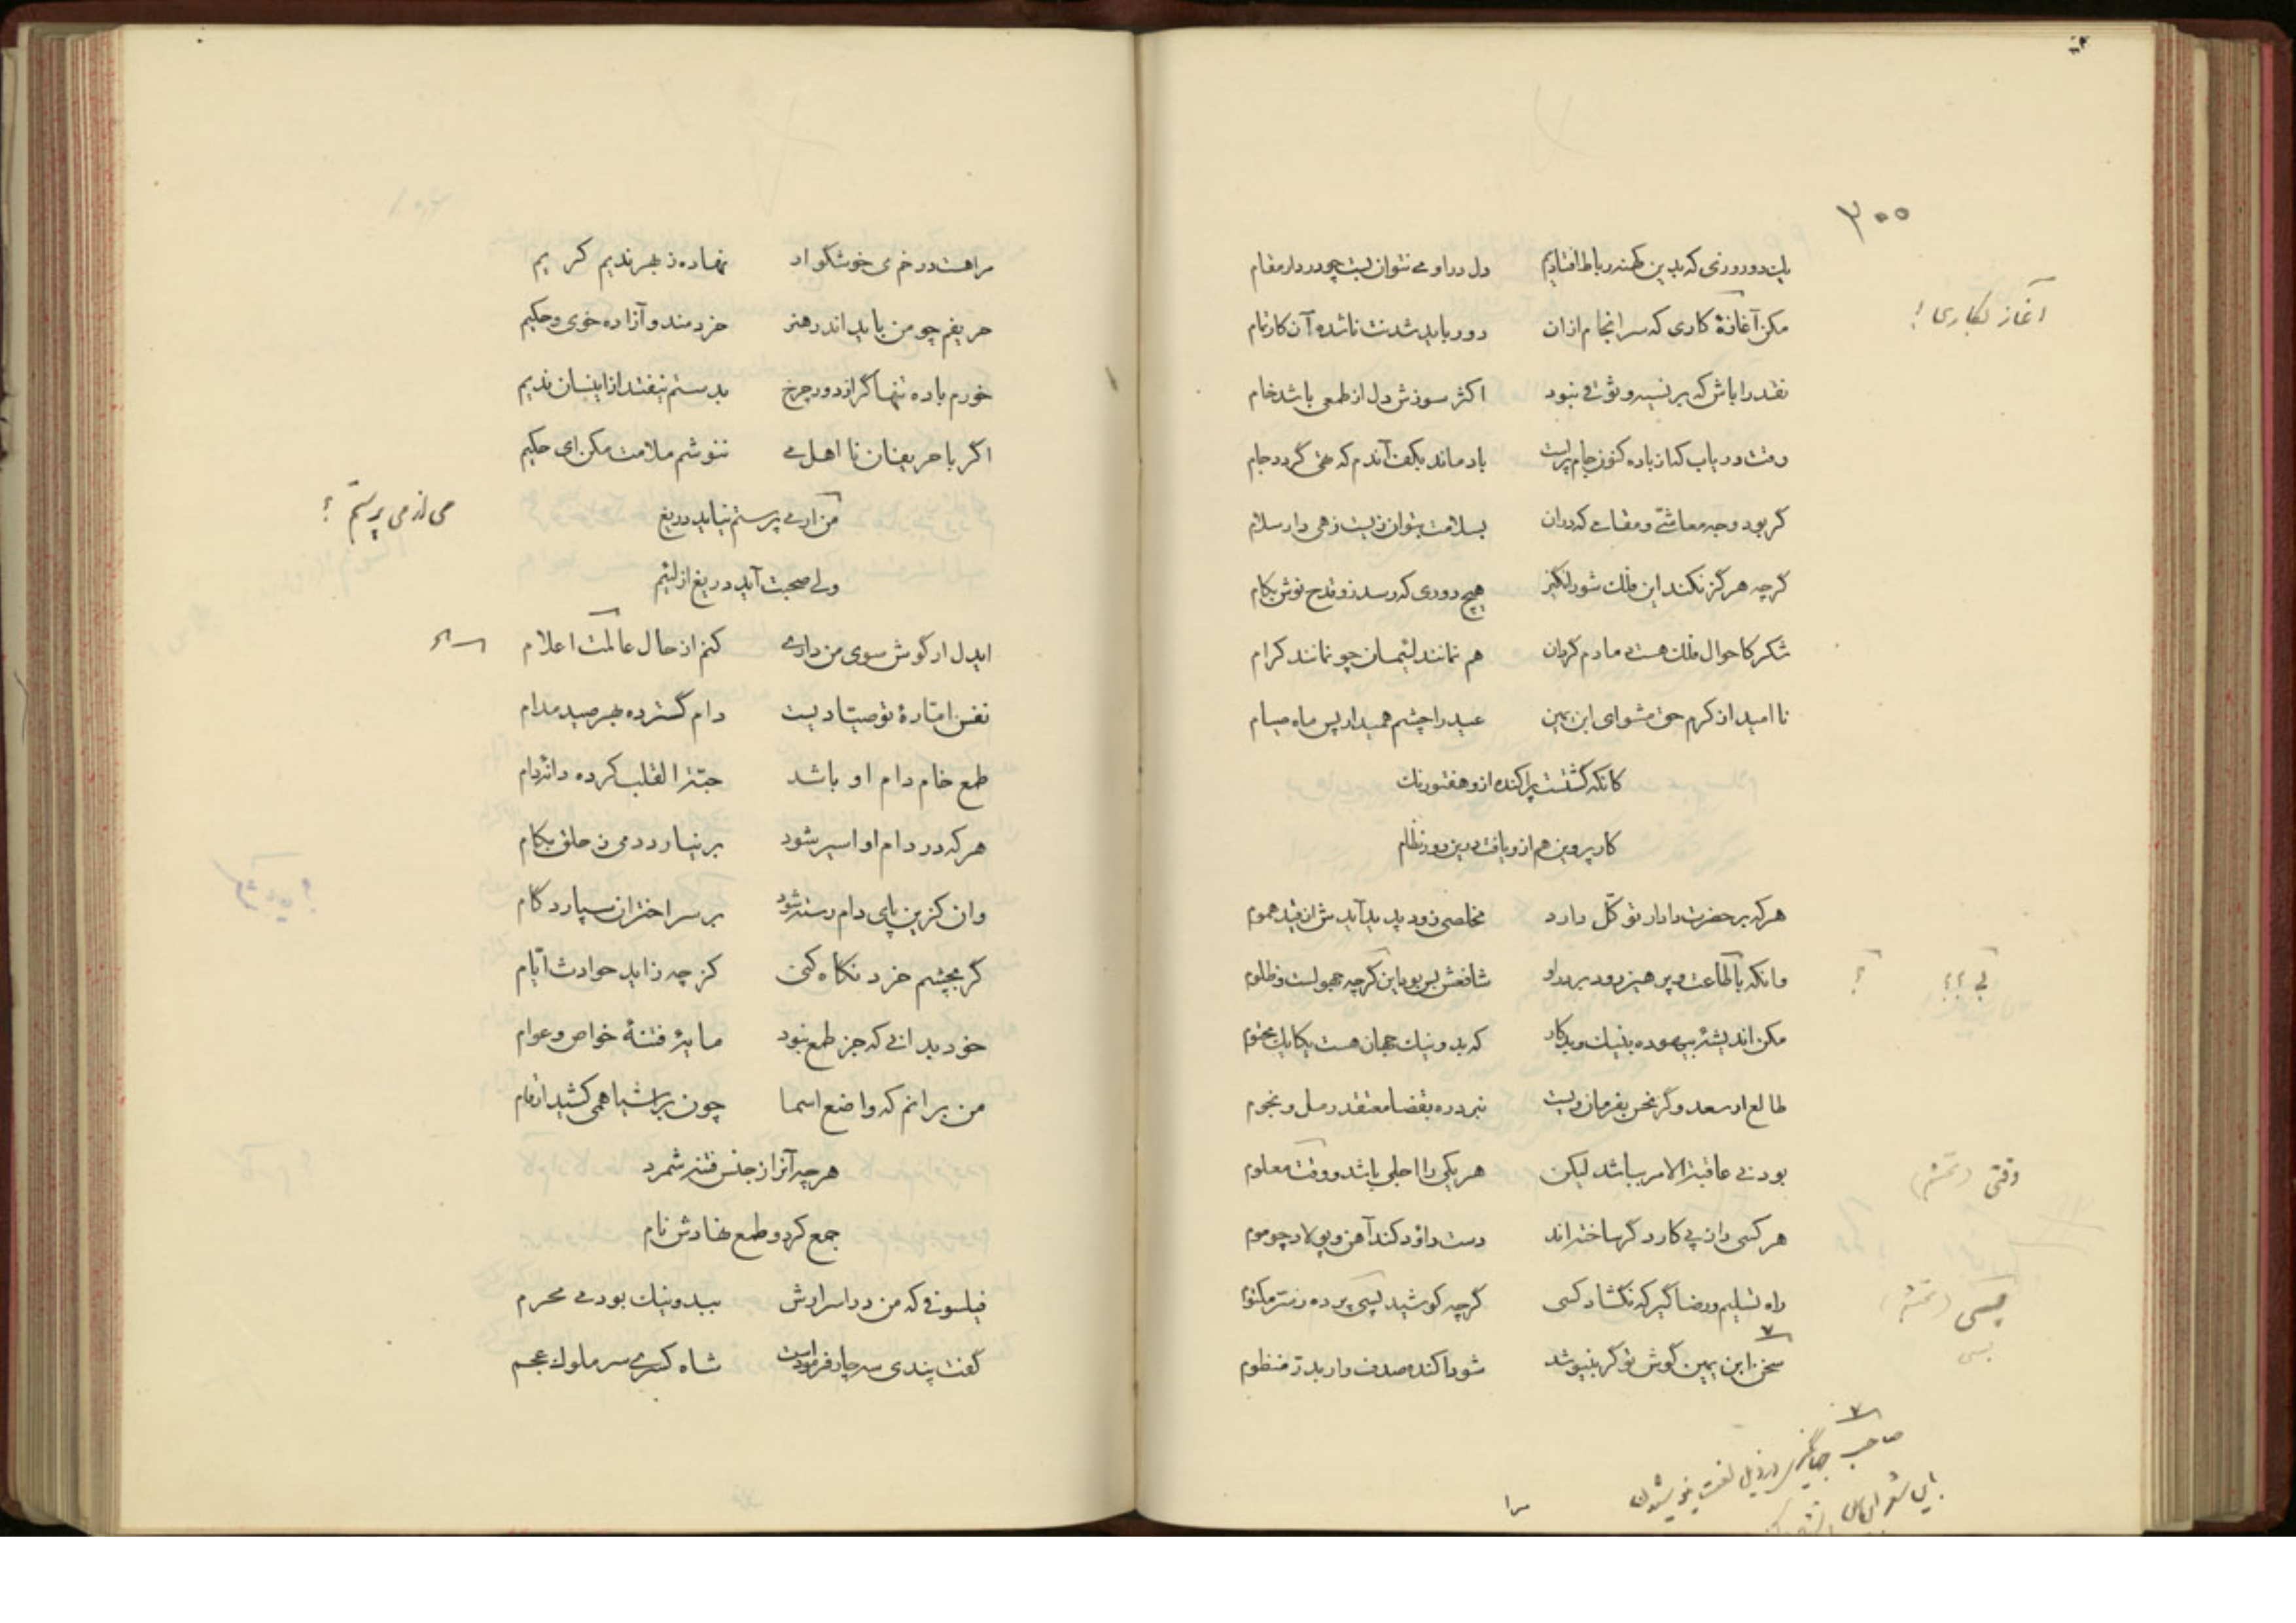 ۳۰۰
یک دو روزی که بدین کهنه رباط افتادیم دل درو می نتوان بست چو در دار مقام
آغاز بکاری؟
مکن آغازهٔ کاری که سرانجام از آن دور باید شدنت ناشده آن کار تمام
نقد را باش که بر نسیه وثوقی نبود اکثر سوزش دل از طمعی باشد خام
وقت دریاب کز باده کنون جام پرست باد ماند بکف آندم که تهی گردد جام
گر بود وجه معاشی و مقامی که در آن بسلامت بتوان زیست زهی دار سلام
گرچه هرگز نکند این فلک شورانگیز هیچ دوری که رسد زو قدح نوش بکام
شکر کاحوال فلک هست مادم گردان هم نمانند لئیمان چو نمانند کرام
ناامید از کرم حق مشو ای ابن یمین عید را چشم همیدار پس ماه صیام
کانکه گشتست پراکنده ازو هفتورنک
کار پروین هم ازو یافت درین دور نظام
هر که بر حضرت دادار توکّل دارد مخلصی زود پدید آیدش از قید هموم
وانکه با طاعت و پرهیز رود بر در او شافعش بس بود این گرچه جهولست و ظلوم
مکن اندیشهٔ بیهوده بنیک و بد کار که بد و نیک جهان هست یکایک محتوم
طالع ار سعد و گر نحس بفرمان ویست نبرد ره بقضا معتقد رمل و نجوم
بودنی عاقبة الامر بباشد لیکن هر یکی را اجلی باشد و وقت معلوم
وقتی
هر کسی را ز پی کار دگر ساخته‌اند دست داود کند آهن و پولاد چو موم
راه تسلیم و رضا گیر که نگشاد کسی گرچه کوشید بسی پرده ز سر مکتوم
بسی
سخن ابن یمین گوش تو گر بنیوشد شود آکنده صدف وار بدر منظوم
صاحب جهانگیری در ذیل لغت
مرا
مرا هست در خم می خوشگوار نهاده ز بهر ندیم کریم
حریفم چو من باید اندر هنر خردمند و آزاده خوی و حکیم
خورم باده تنها گر از دور چرخ بدستم نیفتد ازاینسان ندیم
اگر با حریفان نا اهل می ننوشم ملامت مکن ای حکیم
من ار می پرستم نیاید دریغ
می از می پرستم؟
ولی صحبت آید دریغ از لئیم
ایدل ار گوش سوی من داری کنم از حال عالمت اعلام
نفس امّارهٔ تو صیّادیست دام گسترده بهر صید مدام
طمع خام دام او باشد حبّة القلب کرده دانهٔ دام
هر که در دام او اسیر شود بر نیارد دمی ز حلق بکام
وان کزین پای دام رسته شود بر سر اختران سپارد گام
گر بچشم خرد نگاه کنی کز چه زاید حوادث ایّام
خود بدانی که جز طمع نبود مایهٔ فتنهٔ خواص و عوام
من برانم که واضع اسما چون بر اشیا همی کشید ارقام
هر چه آنرا ز جنس فتنه شمرد
جمع کرد و طمع نهادش نام
فیلسوفی که من در اسرارش ببد و نیک بودمی محرم
گفت پندی سه چار فرمودست شاه کسری سر ملوک عجم